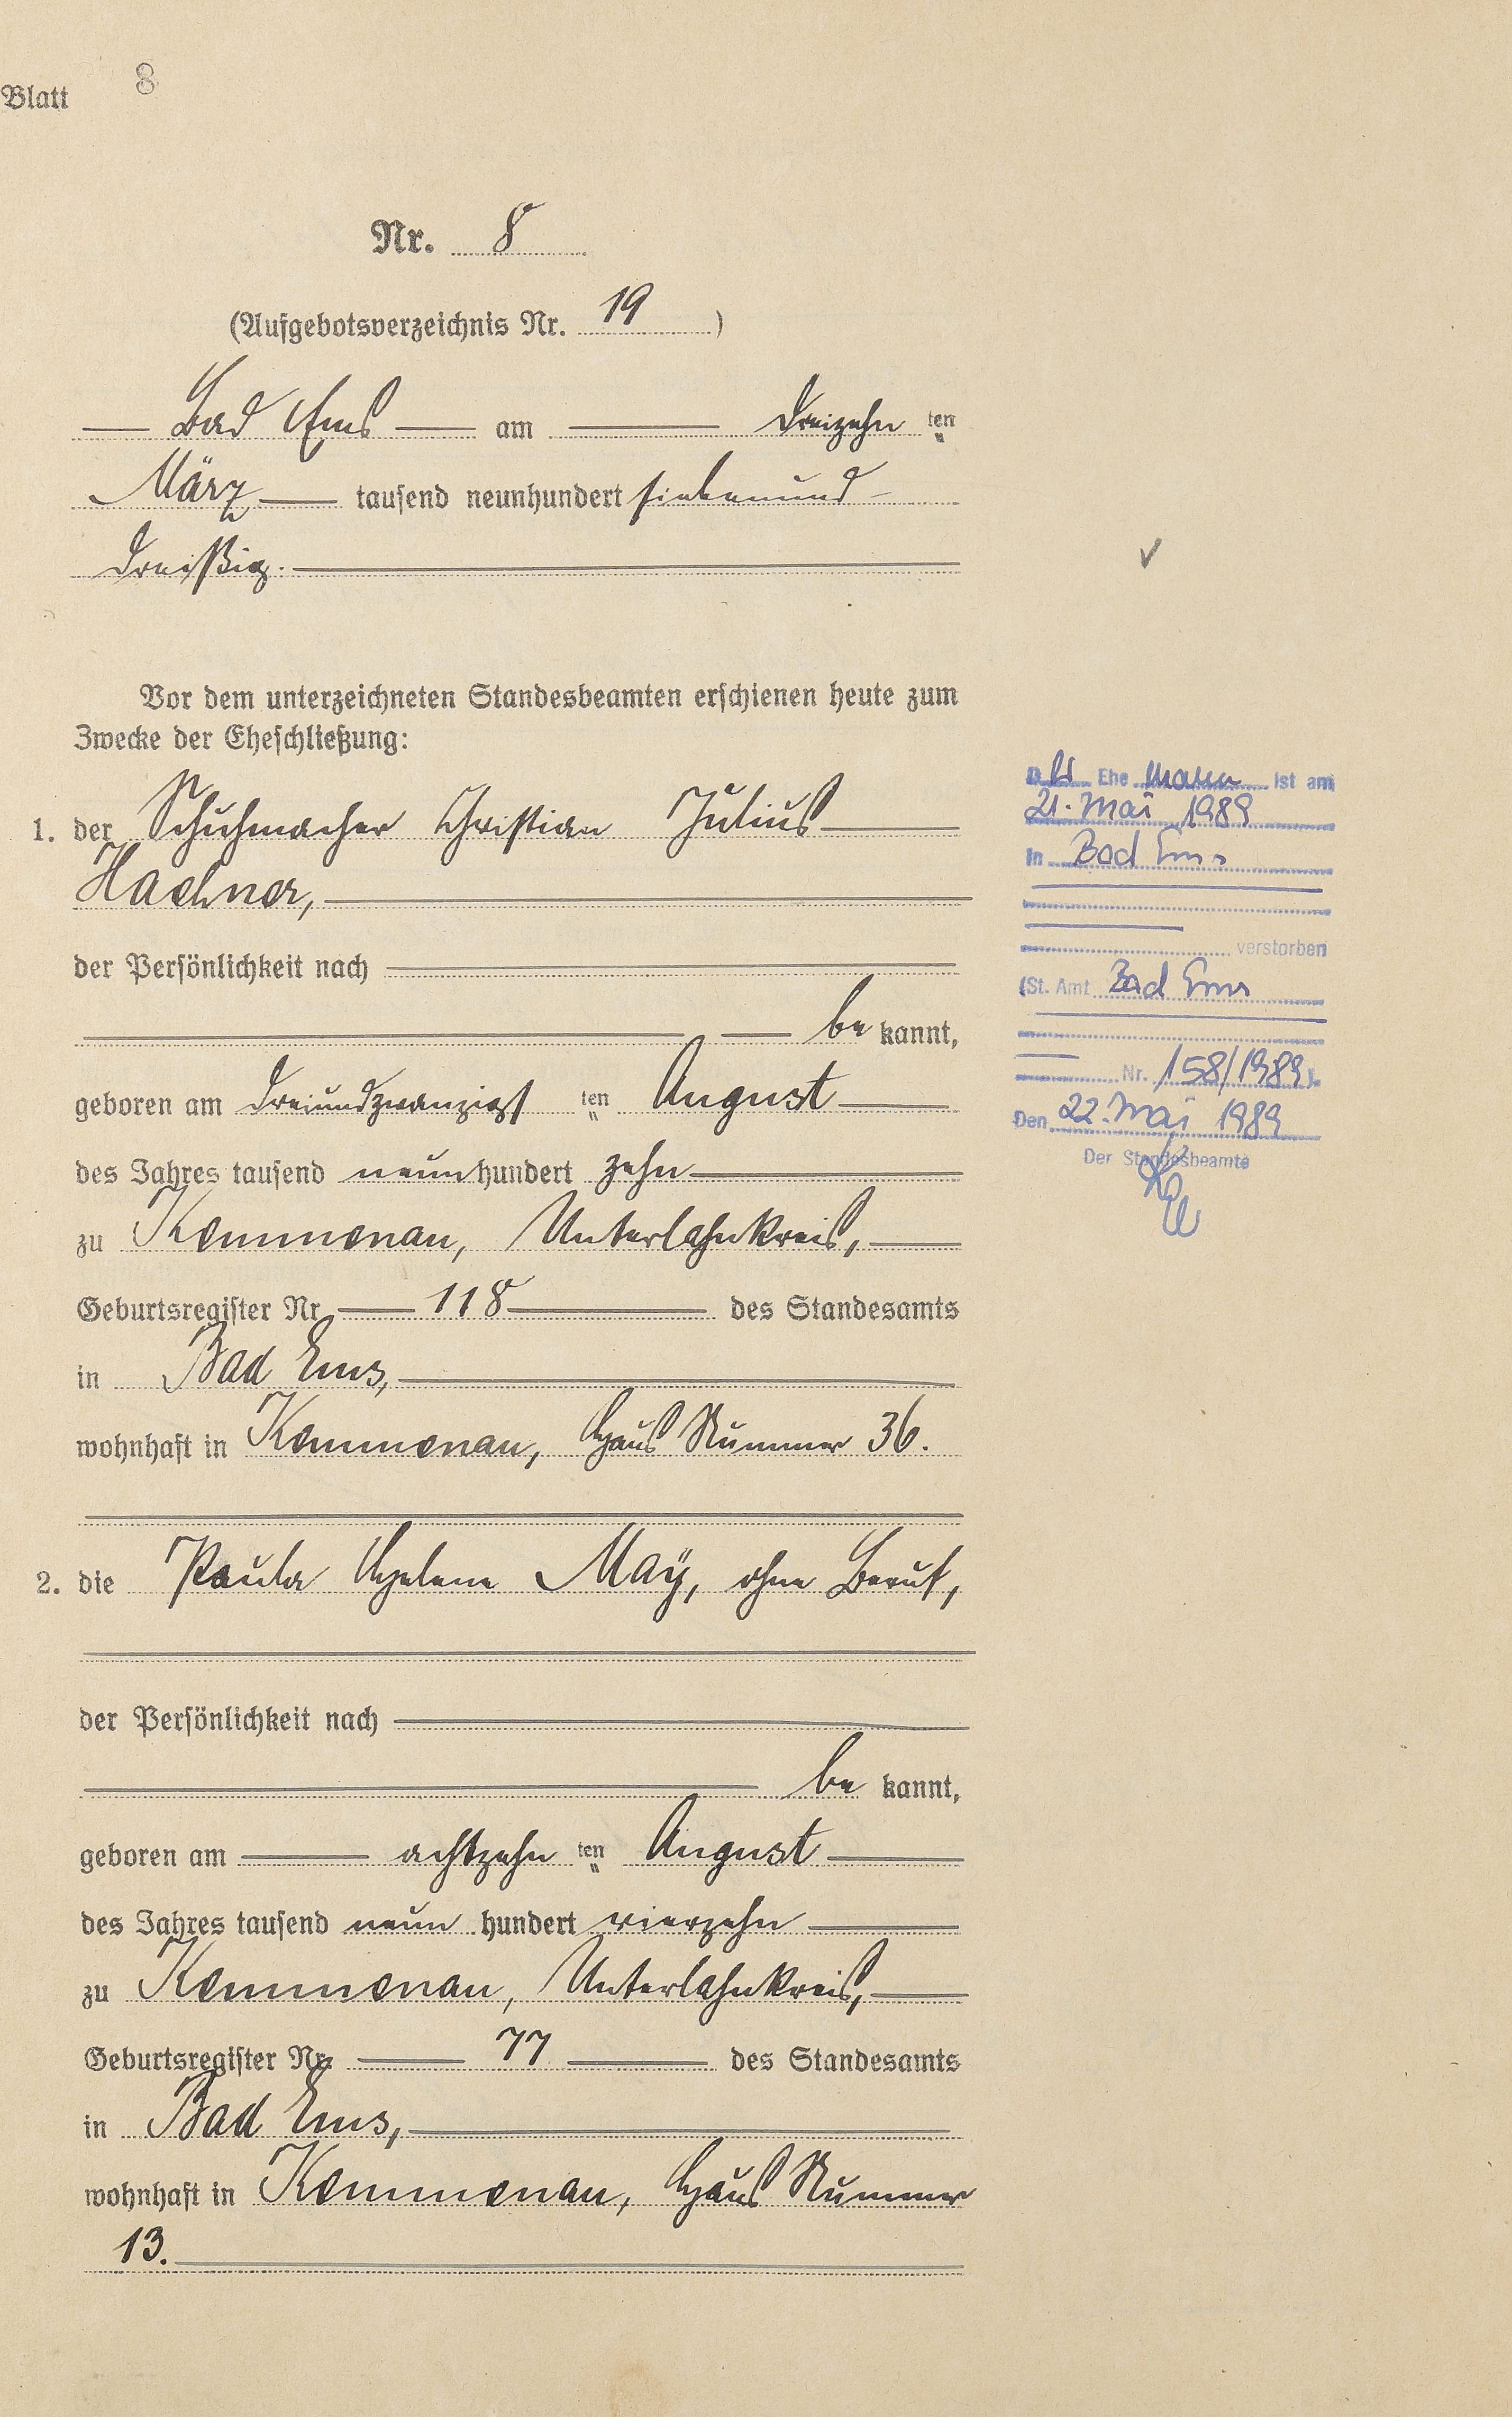 Blatt 8
Nr. 8
(Aufgebotsverzeichnis Nr. 19)
Bad Ems am dreizehn ten
März tausend neunhundert siebenund
dreißig.
Vor dem unterzeichneten Standesbeamten erschienen heute zum
Zwecke der Eheschließung:
1. der Schuhmacher Christian Julius
Hachner,
der Persönlichkeit nach
be kannt,
geboren am dreiundzwanzigst ten August
des Jahres tausend neun hundert zehn
zu Kemmenau, Unterlahnkreis,
Geburtsregister Nr. 118 des Standesamts
in Bad Ems,
wohnhaft in Kemmenau, Haus Nummer 36.
2. die Paula Helene Maÿ, ohne Beruf,
der Persönlichkeit nach
be kannt,
geboren am achtzehn ten August
des Jahres tausend neun hundert vierzehn
zu Kemmenau, Unterlahnkreis,
Geburtsregister Nr. 77 des Standesamts
in Bad Ems,
wohnhaft in Kemmenau, Haus Nummer
13.
Der Ehe mann ist am
21. Mai 1989
in Bad Ems
verstorben
(St. Amt Bad Ems
Nr. 158/1989).
Den 22. Mai 1989
Der Standesbeamte